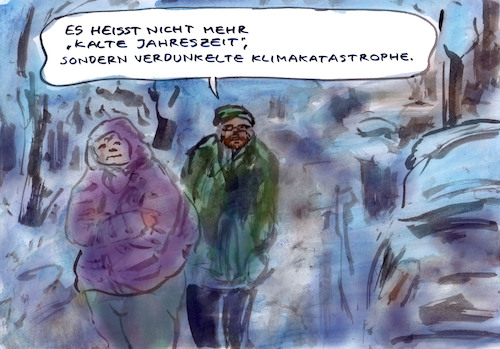 ES HEISST NICHT MEHR
„KALTE JAHRESZEIT",
SONDERN VERDUNKELTE KLIMAKATASTROPHE.